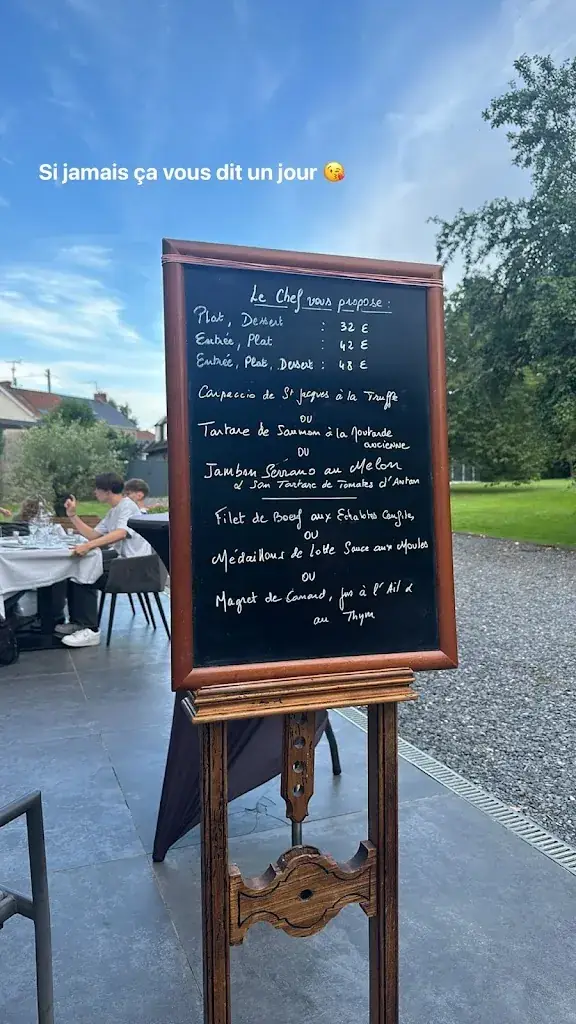 Si jamais ça vous dit un jour 😘
Le Chef vous propose :
Plat, Dessert : 32 €
Entrée, Plat : 42 €
Entrée, Plat, Dessert : 48 €
Carpaccio de St Jacques à la Truffe
OU
Tartare de Saumon à la Moutarde
ancienne
OU
Jambon Serrano au Melon
& Son Tartare de Tomates d'Antan
Filet de Boeuf aux Echalotes Confites,
OU
Médaillons de Lotte Sauce aux Moules
OU
Magret de Canard, jus à l'Ail &
au Thym